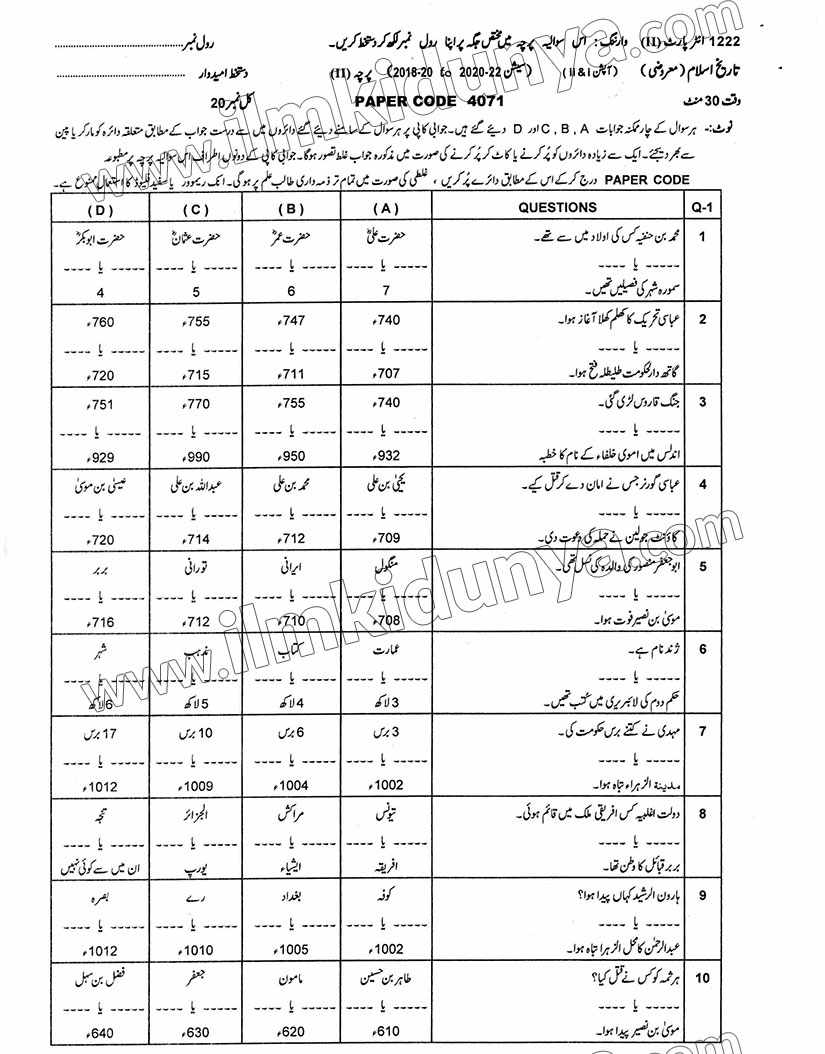 1222 انٹر پارٹ (II) وارننگ: اس سوالیہ پرچہ میں مختص جگہ پر اپنا رول نمبر لکھ کر دستخط کریں۔ رول نمبر
تاریخ اسلام (معروضی) (آپشن I & II) (سیشن 22-2020 to 20-2018) پرچہ (II) دستخط امیدوار
وقت 30 منٹ PAPER CODE 4071 کل نمبر 20
نوٹ:- ہر سوال کے چار ممکنہ جوابات C, B, A اور D دیئے گئے ہیں۔ جوابی کاپی پر ہر سوال کے سامنے دیئے گئے دائروں میں سے درست جواب کے مطابق متعلقہ دائرہ کو مارکر یا پین
سے بھر دیجئے۔ ایک سے زیادہ دائروں کو پُر کرنے یا کاٹ کر پُر کرنے کی صورت میں مذکورہ جواب غلط تصور ہوگا۔ جوابی کاپی کے دونوں اطراف اس سوالیہ پرچہ پر مطبوعہ
PAPER CODE درج کر کے اس کے مطابق دائرے پُر کریں، غلطی کی صورت میں تمام تر ذمہ داری طالب علم پر ہوگی۔ انک ریموور یا سفید فلیوڈ کا استعمال ممنوع ہے۔
Q-1 QUESTIONS (A) (B) (C) (D)
1 محمد بن حنفیہ کس کی اولاد میں سے تھے۔ حضرت علیؓ حضرت عمرؓ حضرت عثمانؓ حضرت ابوبکرؓ
----- یا ---- ----- یا ---- ----- یا ---- ----- یا ---- ----- یا ----
سمورہ شہر کی فصیلیں تھیں۔ 7 6 5 4
2 عباسی تحریک کا کھلم کھلا آغاز ہوا۔ 740ء 747ء 755ء 760ء
----- یا ---- ----- یا ---- ----- یا ---- ----- یا ---- ----- یا ----
گاتھ دارلحکومت طلیطلہ فتح ہوا۔ 707ء 711ء 715ء 720ء
3 جنگ قاروس لڑی گئی۔ 740ء 755ء 770ء 751ء
----- یا ---- ----- یا ---- ----- یا ---- ----- یا ---- ----- یا ----
اندلس میں اموی خلفاء کے نام کا خطبہ 932ء 950ء 990ء 929ء
4 عباسی گورنر جس نے امان دے کر قتل کیے۔ یحییٰ بن علی محمد بن علی عبداللہ بن علی عیسیٰ بن موسیٰ
----- یا ---- ----- یا ---- ----- یا ---- ----- یا ---- ----- یا ----
کاؤنٹ جولین نے حملہ کی دعوت دی۔ 709ء 712ء 714ء 720ء
5 ابو جعفر منصور کی والدہ کی نسل تھی۔ منگول ایرانی تورانی بربر
----- یا ---- ----- یا ---- ----- یا ---- ----- یا ---- ----- یا ----
موسیٰ بن نصیر فوت ہوا۔ 708ء 710ء 712ء 716ء
6 ژند نام ہے۔ عمارت کتاب مذہب شہر
----- یا ---- ----- یا ---- ----- یا ---- ----- یا ---- ----- یا ----
حکم دوم کی لائبریری میں کتب تھیں۔ 3 لاکھ 4 لاکھ 5 لاکھ 6 لاکھ
7 مہدی نے کتنے برس حکومت کی۔ 3 برس 6 برس 10 برس 17 برس
----- یا ---- ----- یا ---- ----- یا ---- ----- یا ---- ----- یا ----
مدینۃ الزہراء تباہ ہوا۔ 1002ء 1004ء 1009ء 1012ء
8 دولت اغلبیہ کس افریقی ملک میں قائم ہوئی۔ تیونس مراکش الجزائر تنجہ
----- یا ---- ----- یا ---- ----- یا ---- ----- یا ---- ----- یا ----
بربر قبائل کا وطن تھا۔ افریقہ ایشیاء یورپ ان میں سے کوئی نہیں
9 ہارون الرشید کہاں پیدا ہوا؟ کوفہ بغداد رے بصرہ
----- یا ---- ----- یا ---- ----- یا ---- ----- یا ---- ----- یا ----
عبدالرحمٰن کا محل الزہرا تباہ ہوا۔ 1002ء 1005ء 1010ء 1012ء
10 ہرثمہ کو کس نے قتل کیا؟ طاہر بن حسین مامون جعفر فضل بن سہل
----- یا ---- ----- یا ---- ----- یا ---- ----- یا ---- ----- یا ----
موسیٰ بن نصیر پیدا ہوا۔ 610ء 620ء 630ء 640ء
www.ilmkidunya.com
www.ilmkidunya.com